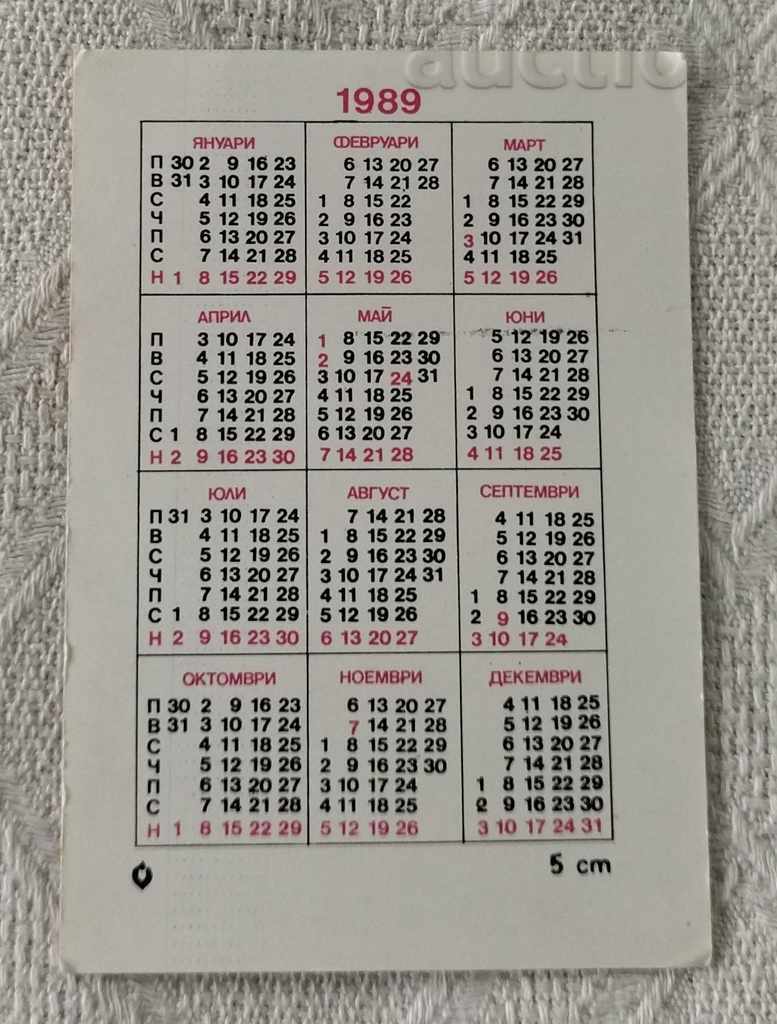 auctio
1989
ЯНУАРИ ФЕВРУАРИ МАРТ
П 30 2 9 16 23 6 13 20 27 6 13 20 27
В 31 3 10 17 24 7 14 21 28 7 14 21 28
С 4 11 18 25 1 8 15 22 1 8 15 22 29
Ч 5 12 19 26 2 9 16 23 2 9 16 23 30
П 6 13 20 27 3 10 17 24 3 10 17 24 31
С 7 14 21 28 4 11 18 25 4 11 18 25
Н 1 8 15 22 29 5 12 19 26 5 12 19 26
АПРИЛ МАЙ ЮНИ
П 3 10 17 24 1 8 15 22 29 5 12 19 26
В 4 11 18 25 2 9 16 23 30 6 13 20 27
С 5 12 19 26 3 10 17 24 31 7 14 21 28
Ч 6 13 20 27 4 11 18 25 1 8 15 22 29
П 7 14 21 28 5 12 19 26 2 9 16 23 30
С 1 8 15 22 29 6 13 20 27 3 10 17 24
Н 2 9 16 23 30 7 14 21 28 4 11 18 25
ЮЛИ АВГУСТ СЕПТЕМВРИ
П 31 3 10 17 24 7 14 21 28 4 11 18 25
В 4 11 18 25 1 8 15 22 29 5 12 19 26
С 5 12 19 26 2 9 16 23 30 6 13 20 27
Ч 6 13 20 27 3 10 17 24 31 7 14 21 28
П 7 14 21 28 4 11 18 25 1 8 15 22 29
С 1 8 15 22 29 5 12 19 26 2 9 16 23 30
Н 2 9 16 23 30 6 13 20 27 3 10 17 24
ОКТОМВРИ НОЕМВРИ ДЕКЕМВРИ
П 30 2 9 16 23 6 13 20 27 4 11 18 25
В 31 3 10 17 24 7 14 21 28 5 12 19 26
С 4 11 18 25 1 8 15 22 29 6 13 20 27
Ч 5 12 19 26 2 9 16 23 30 7 14 21 28
П 6 13 20 27 3 10 17 24 1 8 15 22 29
С 7 14 21 28 4 11 18 25 2 9 16 23 30
Н 1 8 15 22 29 5 12 19 26 3 10 17 24 31
5 cm